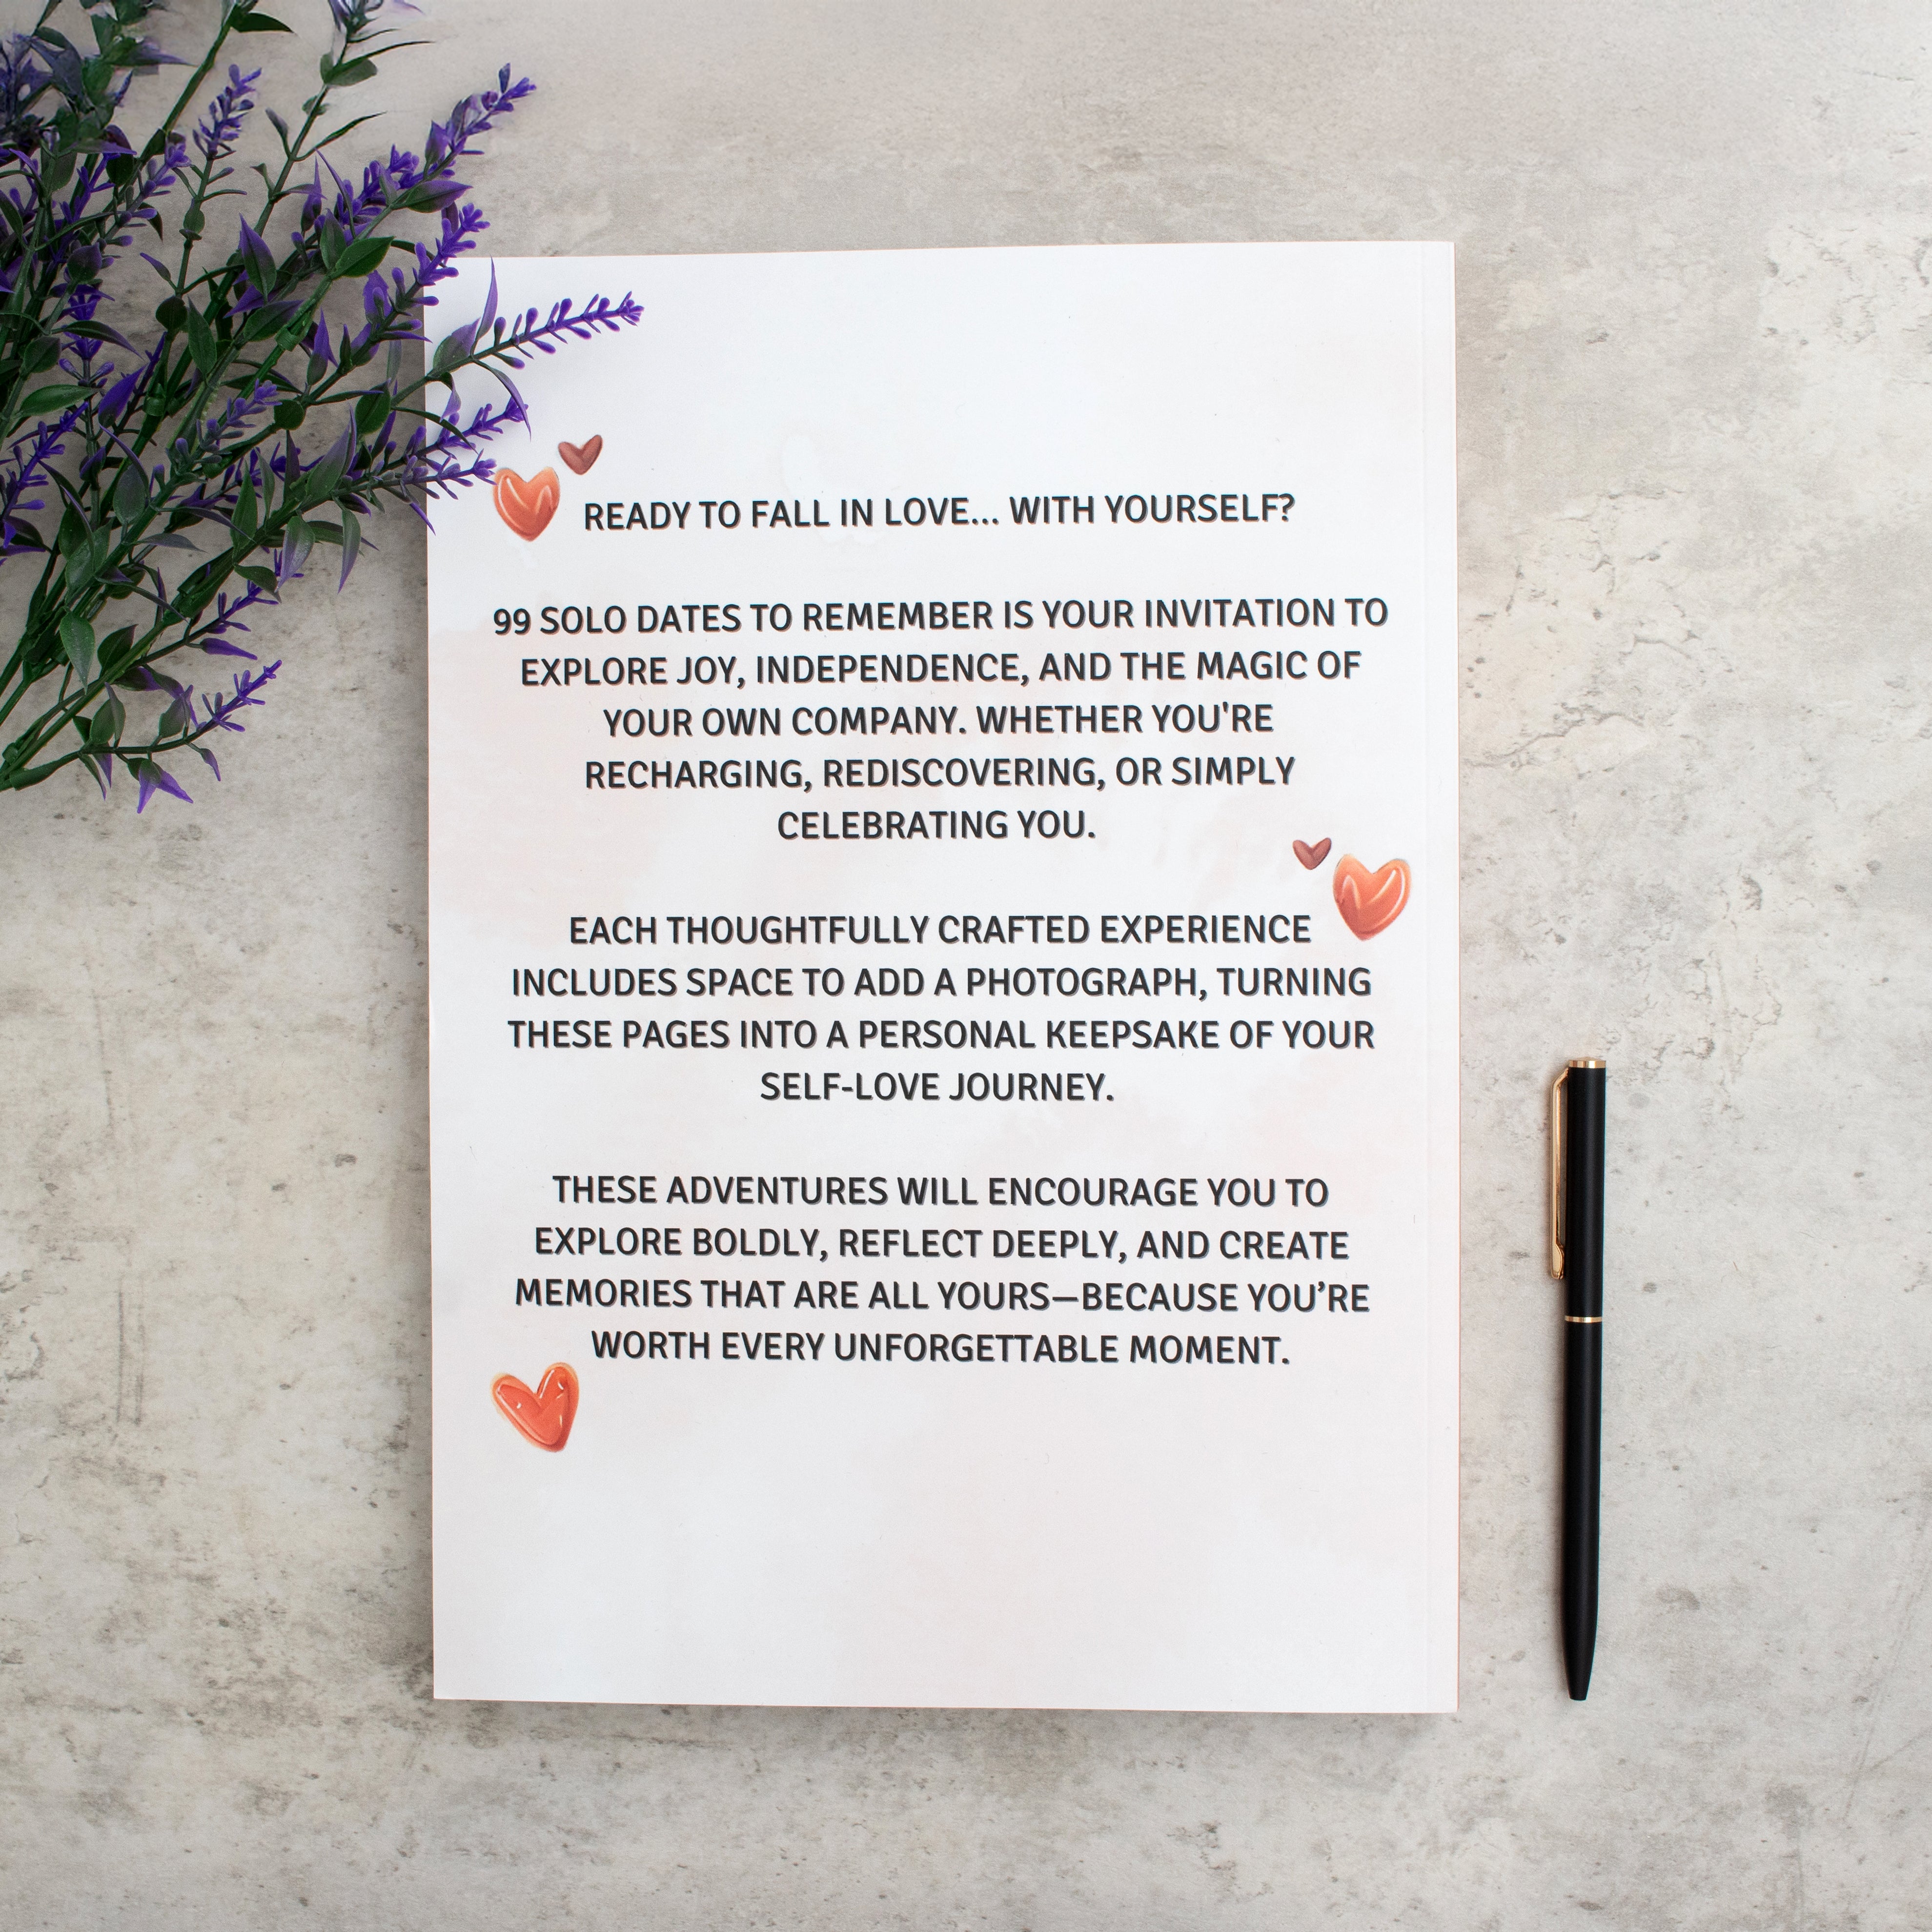 READY TO FALL IN LOVE... WITH YOURSELF?
99 SOLO DATES TO REMEMBER IS YOUR INVITATION TO
EXPLORE JOY, INDEPENDENCE, AND THE MAGIC OF
YOUR OWN COMPANY. WHETHER YOU'RE
RECHARGING, REDISCOVERING, OR SIMPLY
CELEBRATING YOU.
EACH THOUGHTFULLY CRAFTED EXPERIENCE
INCLUDES SPACE TO ADD A PHOTOGRAPH, TURNING
THESE PAGES INTO A PERSONAL KEEPSAKE OF YOUR
SELF-LOVE JOURNEY.
THESE ADVENTURES WILL ENCOURAGE YOU TO
EXPLORE BOLDLY, REFLECT DEEPLY, AND CREATE
MEMORIES THAT ARE ALL YOURS—BECAUSE YOU’RE
WORTH EVERY UNFORGETTABLE MOMENT.